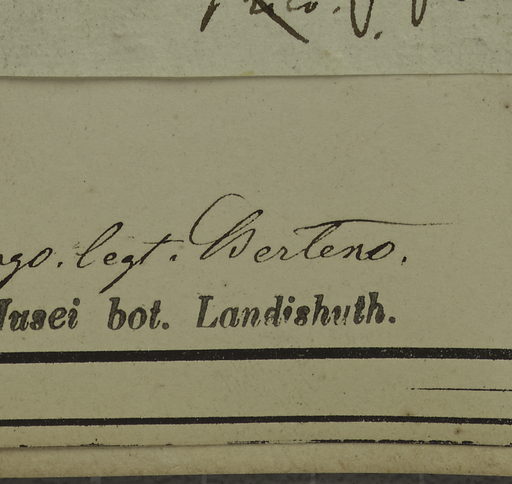 ngo. legt. Berteno.
Musei bot. Landishuth.